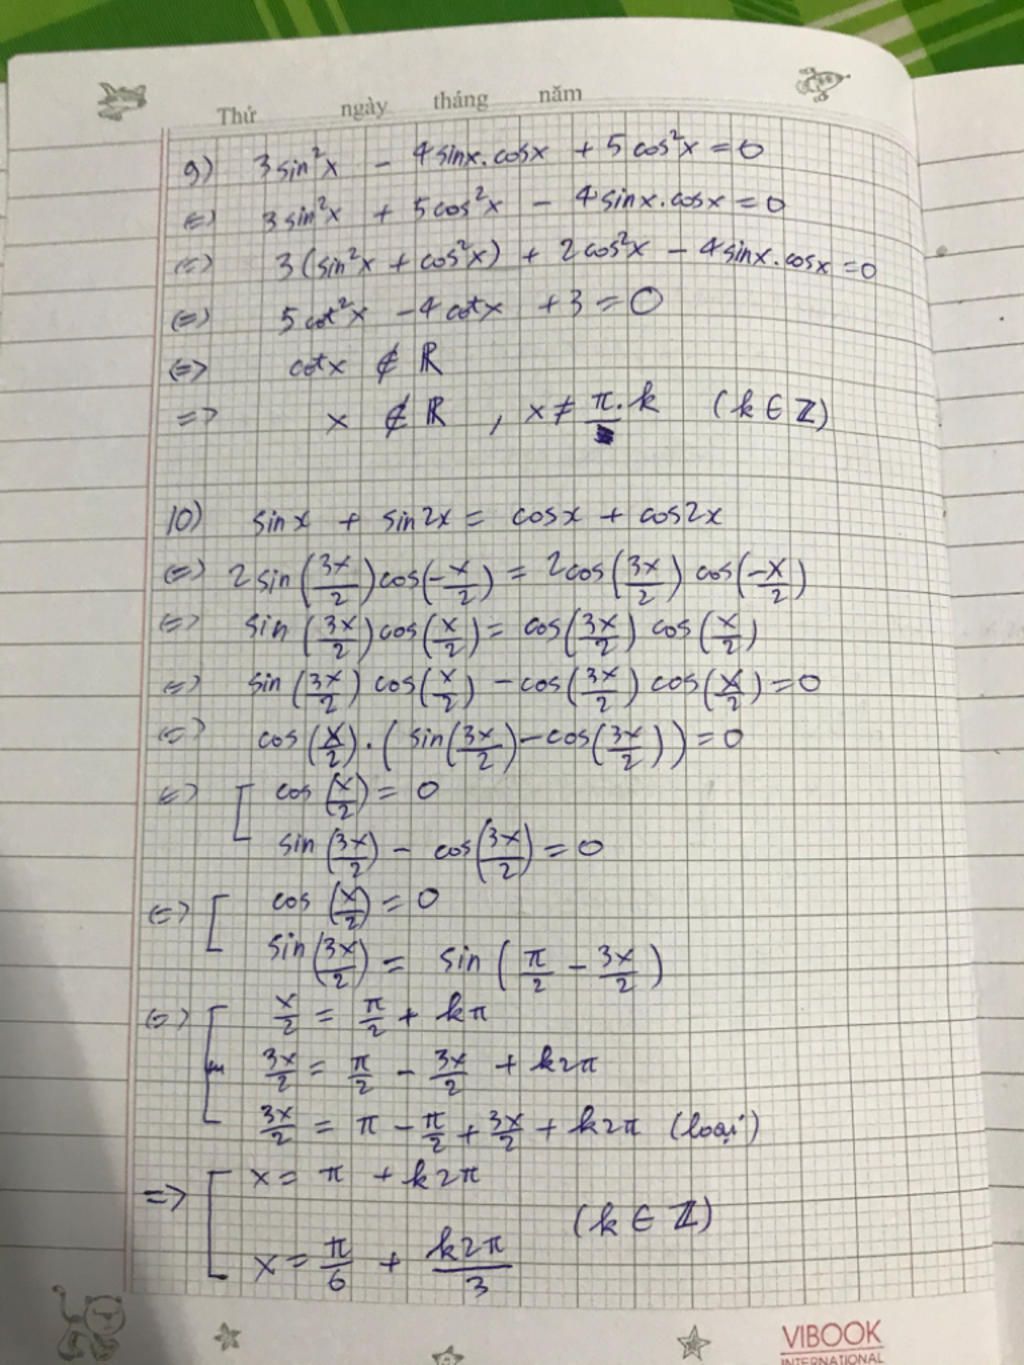 Thứ ngày tháng năm
9) 3sin²x - 4sinx.cosx + 5cos²x = 0
(=) 3sin²x + 5cos²x - 4sinx.cosx = 0
(=) 3(sin²x + cos²x) + 2cos²x - 4sinx.cosx = 0
(=) 5cot²x - 4cotx + 3 = 0
(=> cotx ∉ ℝ
=> x ∉ ℝ , x ≠ π.k (k ∈ ℤ)
10) sinx + sin2x = cosx + cos2x
(=) 2sin(3x/2)cos(-x/2) = 2cos(3x/2) cos(-x/2)
(=) sin(3x/2)cos(x/2) = cos(3x/2) cos(x/2)
(=) sin(3x/2) cos(x/2) - cos(3x/2) cos(x/2) = 0
(=) cos(x/2).(sin(3x/2) - cos(3x/2)) = 0
(=) [ cos(x/2) = 0
sin(3x/2) - cos(3x/2) = 0
(=) [ cos(x/2) = 0
sin(3x/2) = sin(π/2 - 3x/2)
(=) [ x/2 = π/2 + kπ
3x/2 = π/2 - 3x/2 + k2π
3x/2 = π - π/2 + 3x/2 + k2π (loại)
=> [ x = π + k2π
(k ∈ ℤ)
x = π/6 + k2π/3
VIBOOK
INTERNATIONAL